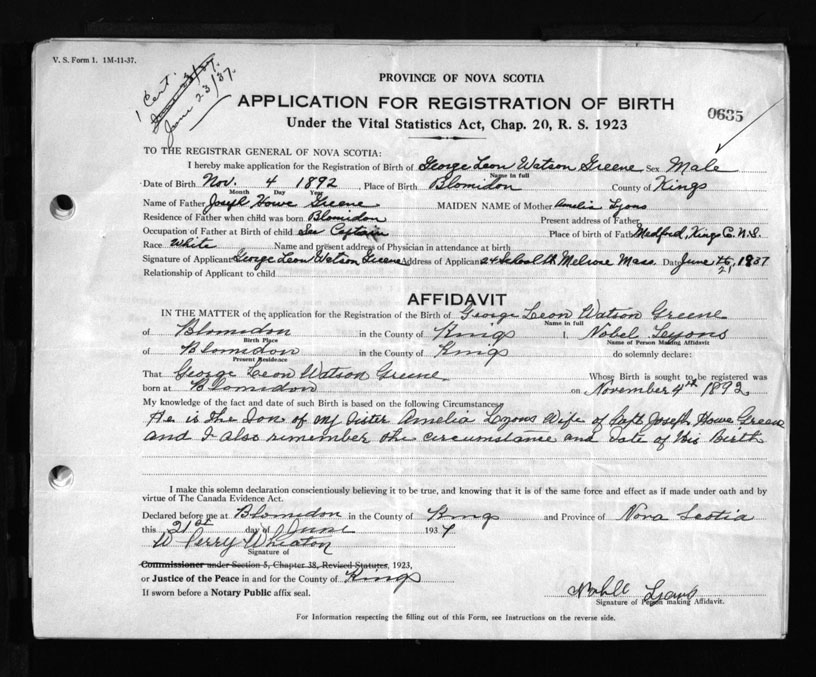 V. S. Form 1. 1M-11-37.
1 Cert.
June 23/37.
June 23/37.
PROVINCE OF NOVA SCOTIA
APPLICATION FOR REGISTRATION OF BIRTH
0635
Under the Vital Statistics Act, Chap. 20, R. S. 1923
TO THE REGISTRAR GENERAL OF NOVA SCOTIA:
I hereby make application for the Registration of Birth of George Leon Watson Greene Sex Male
Name in full
Date of Birth Nov. 4 1892, Place of Birth Blomidon County of Kings
Month Day Year
Name of Father Joseph Howe Greene MAIDEN NAME of Mother Amelia Lyons
Residence of Father when child was born Blomidon Present address of Father
Occupation of Father at Birth of child Sea Captain Place of birth of Father Medford, Kings Co. N.S.
Race White Name and present address of Physician in attendance at birth
Signature of Applicant George Leon Watson Greene Address of Applicant 24 School St. Melrose Mass. Date June 1937
21
Relationship of Applicant to child
AFFIDAVIT
IN THE MATTER of the application for the Registration of the Birth of George Leon Watson Greene
Name in full
of Blomidon in the County of Kings I, Nobel Lyons
Birth Place Name of Person Making Affidavit
of Blomidon in the County of Kings do solemnly declare:
Present Residence
That George Leon Watson Greene Whose Birth is sought to be registered was
born at Blomidon on November 4th 1892
My knowledge of the fact and date of such Birth is based on the following Circumstances
He is the Son of my Sister Amelia Lyons Wife of Capt Joseph Howe Greene
and I also remember the circumstance and date of his Birth
I make this solemn declaration conscientiously believing it to be true, and knowing that it is of the same force and effect as if made under oath and by
virtue of The Canada Evidence Act.
Declared before me at Blomidon in the County of Kings and Province of Nova Scotia
this 21st day of June 1937
W Perry Wheaton
Signature of
Commissioner under Section 5, Chapter 38, Revised Statutes, 1923,
or Justice of the Peace in and for the County of Kings
If sworn before a Notary Public affix seal.
Lyons
Signature of Person making Affidavit.
For Information respecting the filling out of this Form, see Instructions on the reverse side.